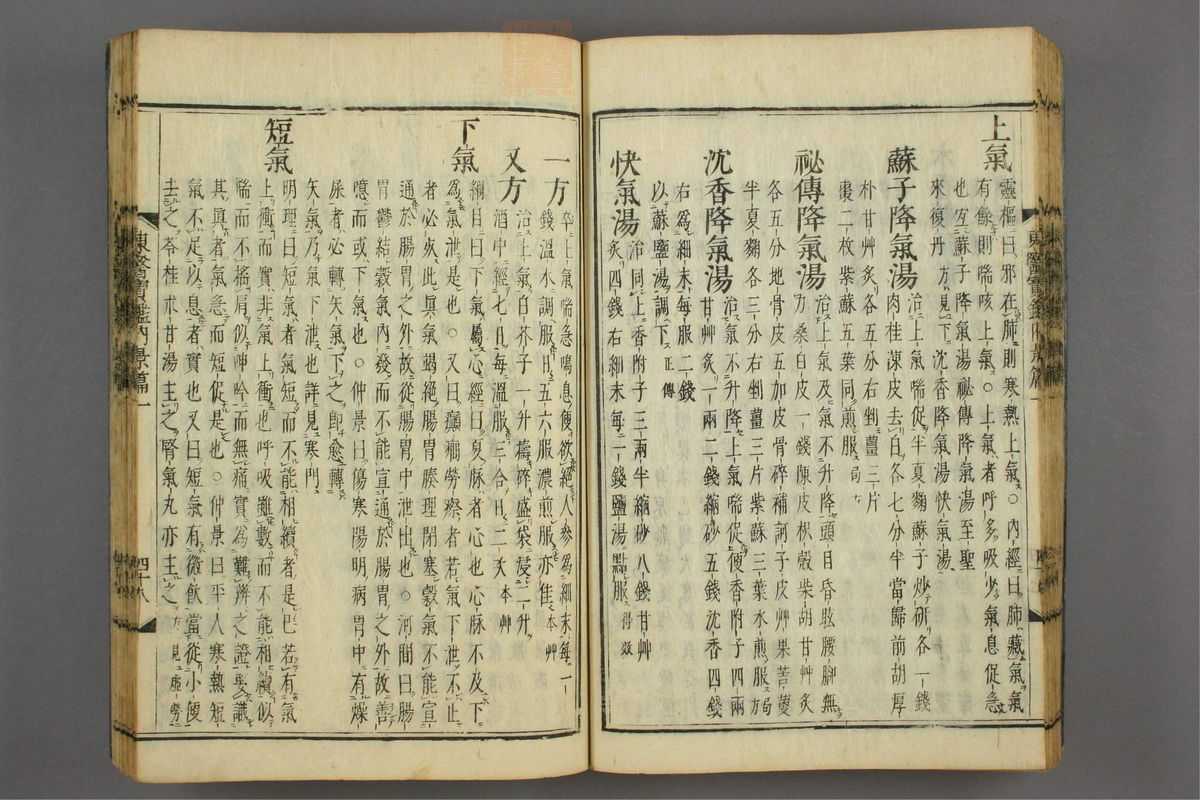 上氣
靈樞曰邪在肺則寒熱上氣○内經曰肺藏氣氣
有餘則喘咳上氣○上氣者呼多吸少氣息促急
也宜蘇子降氣湯祕傳降氣湯至聖
來復丹方見下沈香降氣湯快氣湯
蘇子降氣湯治上氣喘促半夏麴蘇子炒研各一錢
肉桂陳皮去白各七分半當歸前胡厚
朴甘艸炙各五分右剉薑三片
棗二枚紫蘇五葉同煎服局方
祕傳降氣湯治上氣及氣不升降頭目昏眩腰脚無
力桑白皮一錢陳皮枳殼柴胡甘艸炙
各五分地骨皮五加皮骨碎補訶子皮艸果苦蔓
半夏麴各三分右剉薑三片紫蘇三葉水煎服局方
沈香降氣湯治氣不升降上氣喘促便香附子四兩
甘艸炙一兩二錢縮砂五錢沈香四錢
右爲細末每服二錢
以蘇鹽湯調下正傳
快氣湯治同上香附子三兩半縮砂八錢甘艸
炙四錢右細末每一錢鹽湯點服得效
一方卒上氣喘急鳴息便欲絕人參爲細末每一
錢溫水調服日五六服濃煎服亦佳本艸
又方治上氣白芥子一升擣碎盛袋浸二升
酒中經七日每溫服三合日二次本艸
下氣
綱目曰下氣屬心經曰夏脉者心也心脉不及下
爲氣泄是也○又曰癲癎勞瘵者若氣下泄不止
者必死此眞氣竭絕腸胃腠理閉塞穀氣不能宣
通於腸胃之外故從腸胃中泄出也○河間曰腸
胃鬱結穀氣內發而不能宣通於腸胃之外故善
噫而或下氣也○仲景曰傷寒陽明病胃中有燥
屎者必轉矢氣下之即愈轉
矢氣乃氣下泄也詳見寒門
短氣
明理曰短氣者氣短而不能相續者是巴若有氣
上衝而實非氣上衝也呼吸雖數而不能相續似
喘而不搖肩似呻吟而無痛實爲難辨之證要識
其眞者氣急而短促是也○仲景曰平人寒熱短
氣不足以息者實也又曰短氣有微飲當從小便
去之苓桂朮甘湯主之腎氣丸亦主之方見虛勞
東醫寶鑑內景篇一
四十八